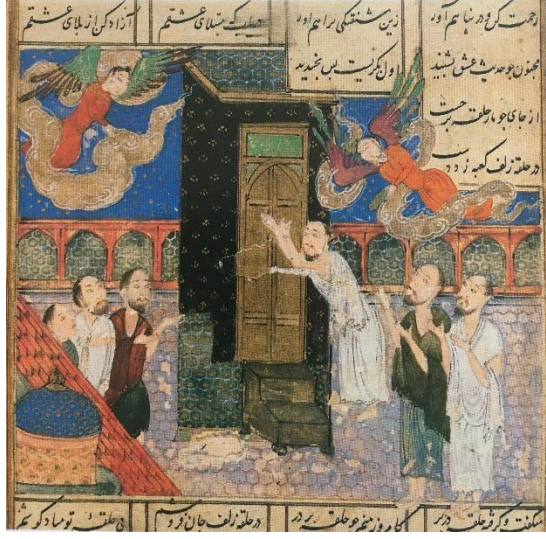 رحمت کن و در پناهم آور زین شیفتگی براهم آور دریاب که مبتلای عشقم آزاد کن از بلای عشقم
مجنون چو حدیث عشق بشنید اول بگریست پس بخندید
از جای چو مار حلقه برجست
در حلقه زلف کعبه زد دست
میگفت و گرفته حلقه در بر کامروز منم چو حلقه بر در در حلقه زلف جان فروشم بی حلقه تو مباد گوشم